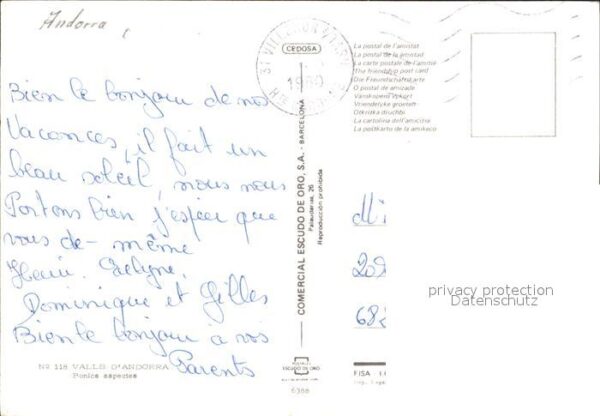 Andorra
Bien le bonjour de nos
Vacances, il fait un
beau soleil, nous nous
Portons bien j'espère que
vous de-même
Evelyne,
Dominique et Gilles
Bien le bonjour à vos
Parents
Nº 118 VALLS D'ANDORRA
CEDOSA
COMERCIAL ESCUDO DE ORO, S.A. - BARCELONA
Palaudarias, 26
Reproducción prohibida
ESCUDO DE ORO
6388
1980
La postal de l'amistat
La postal de la amistad
La carte postale de l'amitié
The friendship post card
Die Freundschaftskarte
O postal de amizade
Vänskapens vykort
Vriendelijke groeten
Otkritka druzhbi
La cartolina dell'amicizia
La postkarto de la amikeco
privacy protection
Datenschutz
FISA